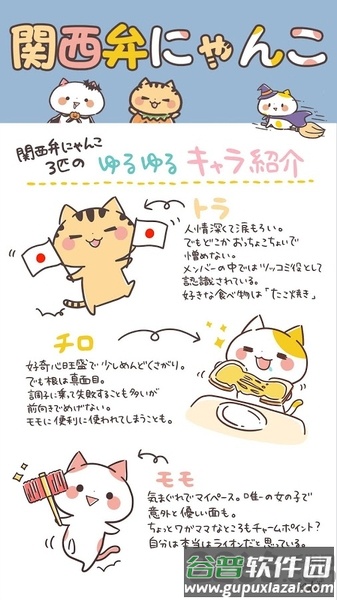 関西弁にゃんこ
関西弁にゃんこ
3匹の
ゆるゆる キャラ紹介
トラ
人情深くて涙もろい。
でもどこかおっちょこちょいで
憎めない。
メンバーの中ではツッコミ役として
認識されている。
好きな食べ物は「たこ焼き」
チロ
好奇心旺盛で少しめんどくさがり。
でも根は真面目。
調子に乗って失敗することも多いが
前向きでめげない。
モモに便利に使われてしまうことも。
モモ
気まぐれでマイペース。唯一の女の子で
意外と優しい面も。
ちょっとワガママなところもチャームポイント?
自分は本当はライオンだと思っている。
谷普软件园
www.gupuxiazai.com